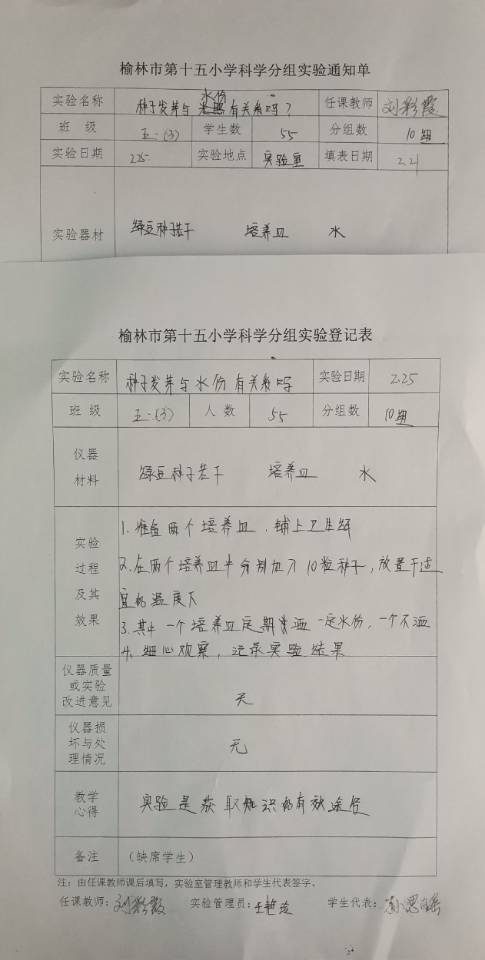 榆林市第十五小学科学分组实验通知单
水份
实验名称 种子发芽与光照有关系吗？ 任课教师 刘彩霞
班 级 五.(3) 学生数 55 分组数 10组
实验日期 2.25 实验地点 实验室 填表日期 2.21
实验器材 绿豆种子若干 培养皿 水
榆林市第十五小学科学分组实验登记表
实验名称 种子发芽与水份有关系吗 实验日期 2.25
班 级 五.(3) 人 数 55 分组数 10组
仪器
材料 绿豆种子若干 培养皿 水
实验
过程
及其
效果
1. 准备两个培养皿，铺上卫生纸
2. 在两个培养皿中分别加入10粒种子，放置于适
宜的温度下
3. 其中一个培养皿定期洒一定水份，一个不洒
4. 细心观察，记录实验结果
仪器质量
或实验
改进意见
无
仪器损
坏与处
理情况
无
教学
心得
实验是获取知识的有效途径
备注 （缺席学生）
注：由任课教师课后填写，实验室管理教师和学生代表签字。
任课教师：刘彩霞 实验管理员： 学生代表：